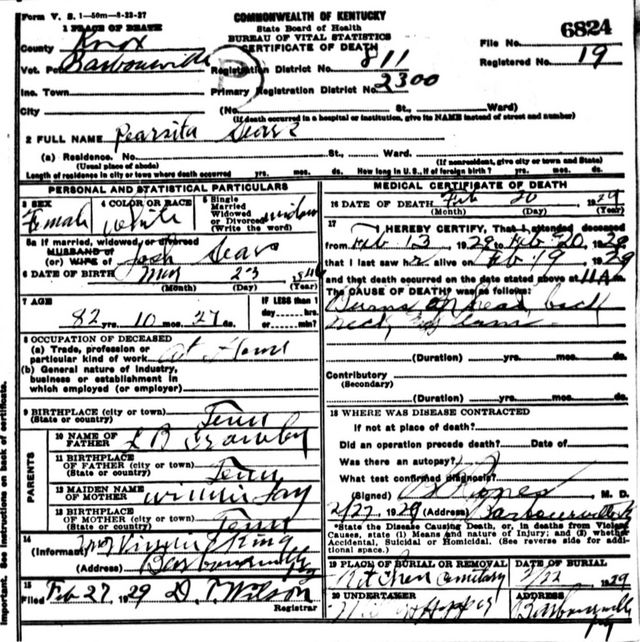 Form V. S. 1-50m-8-23-27
COMMONWEALTH OF KENTUCKY
State Board of Health
BUREAU OF VITAL STATISTICS
CERTIFICATE OF DEATH
1 PLACE OF DEATH
County Knox
File No. 6824
Vot. Barbourville
Registration District No. 811
Registered No. 19
Inc. Town
Primary Registration District No. 2300
City (No. St., Ward)
(If death occurred in a hospital or institution, give its NAME instead of street and number)
2 FULL NAME Sears
(a) Residence. No. St., Ward.
(Usual place of abode) (If nonresident, give city or town and State)
Length of residence in city or town where death occurred yrs. mos. ds. How long in U. S., if of foreign birth? yrs. mos. ds.
PERSONAL AND STATISTICAL PARTICULARS
3 SEX
Female
4 COLOR OR RACE
White
5 Single
Married
Widowed
or Divorced
(Write the word)
widow
5a If married, widowed, or divorced
HUSBAND of
(or) WIFE of Josh Sears
6 DATE OF BIRTH May 23
(Month) (Day) (Year)
7 AGE
82 yrs. 10 mos. 27 ds.
IF LESS than 1
day hrs.
or min.?
8 OCCUPATION OF DECEASED
(a) Trade, profession or
particular kind of work At Home
(b) General nature of industry,
business or establishment in
which employed (or employer)
9 BIRTHPLACE (city or town)
(State or country) Tenn
PARENTS
10 NAME OF
FATHER L B
11 BIRTHPLACE
OF FATHER (city or town)
(State or country) Tenn
12 MAIDEN NAME
OF MOTHER
13 BIRTHPLACE
OF MOTHER (city or town)
(State or country) Tenn
14
(Informant) King
(Address) Barbourville Ky
15
Filed Feb 27, 1929 D. T. Wilson
Registrar
MEDICAL CERTIFICATE OF DEATH
16 DATE OF DEATH Feb 20 1929
(Month) (Day) (Year)
17
I HEREBY CERTIFY, That I attended deceased
from Feb 13, 1929 to Feb 20, 1929
that I last saw her alive on Feb 19, 1929
and that death occurred on the date stated above at 11 A m.
The CAUSE OF DEATH* was as follows:
Burns of head, back
neck,
(Duration) yrs. mos. ds.
Contributory
(Secondary)
(Duration) yrs. mos. ds.
18 WHERE WAS DISEASE CONTRACTED
If not at place of death?
Did an operation precede death? Date of
Was there an autopsy?
What test confirmed diagnosis?
(Signed) Jones M. D.
2/27, 1929 (Address) Barbourville Ky
*State the Disease Causing Death, or, in deaths from Violent
Causes, state (1) Means and nature of Injury; and (2) whether
Accidental, Suicidal or Homicidal. (See reverse side for addi-
tional space.)
19 PLACE OF BURIAL OR REMOVAL
DATE OF BURIAL
2/22 1929
20 UNDERTAKER
ADDRESS
Barbourville
Ky
Important. See instructions on back of certificate.